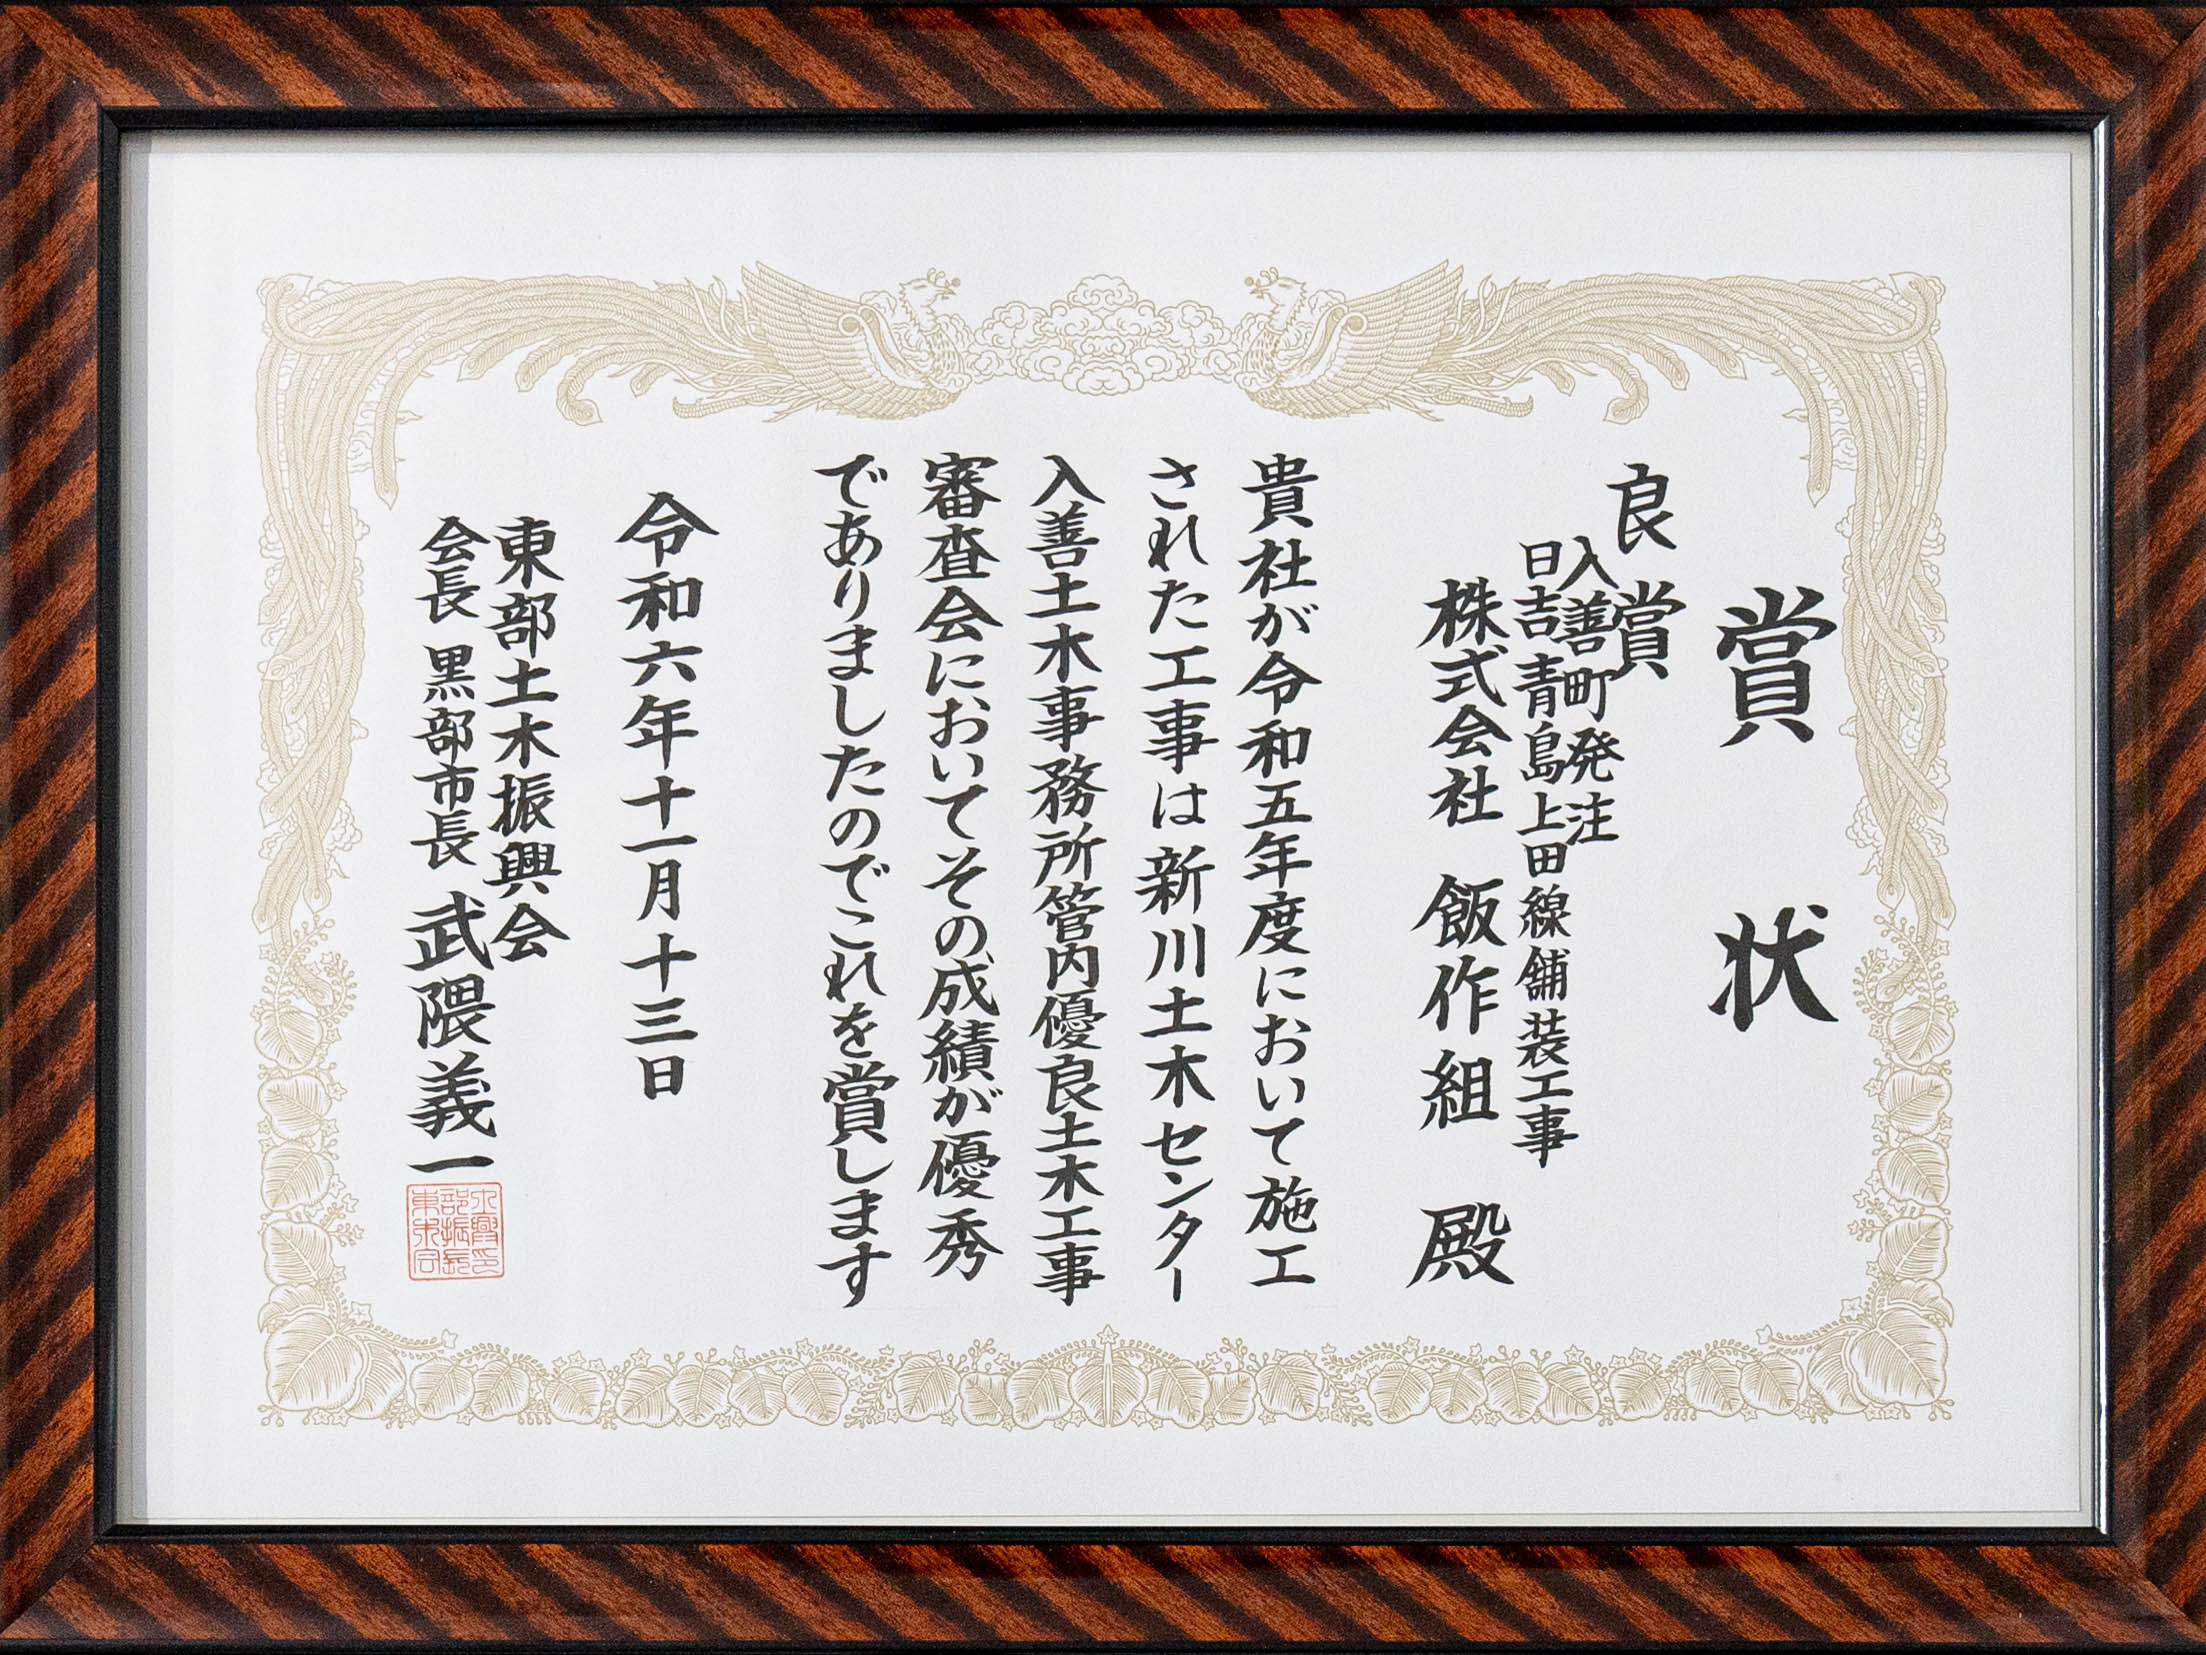 賞状
良賞
入善町発注
日吉青島上田線舗装工事
株式会社 飯作組 殿
貴社が令和五年度において施工
された工事は新川土木センター
入善土木事務所管内優良土木工事
審査会においてその成績が優秀
でありましたのでこれを賞します
令和六年十一月十三日
東部土木振興会
会長 黒部市長 武隈義一